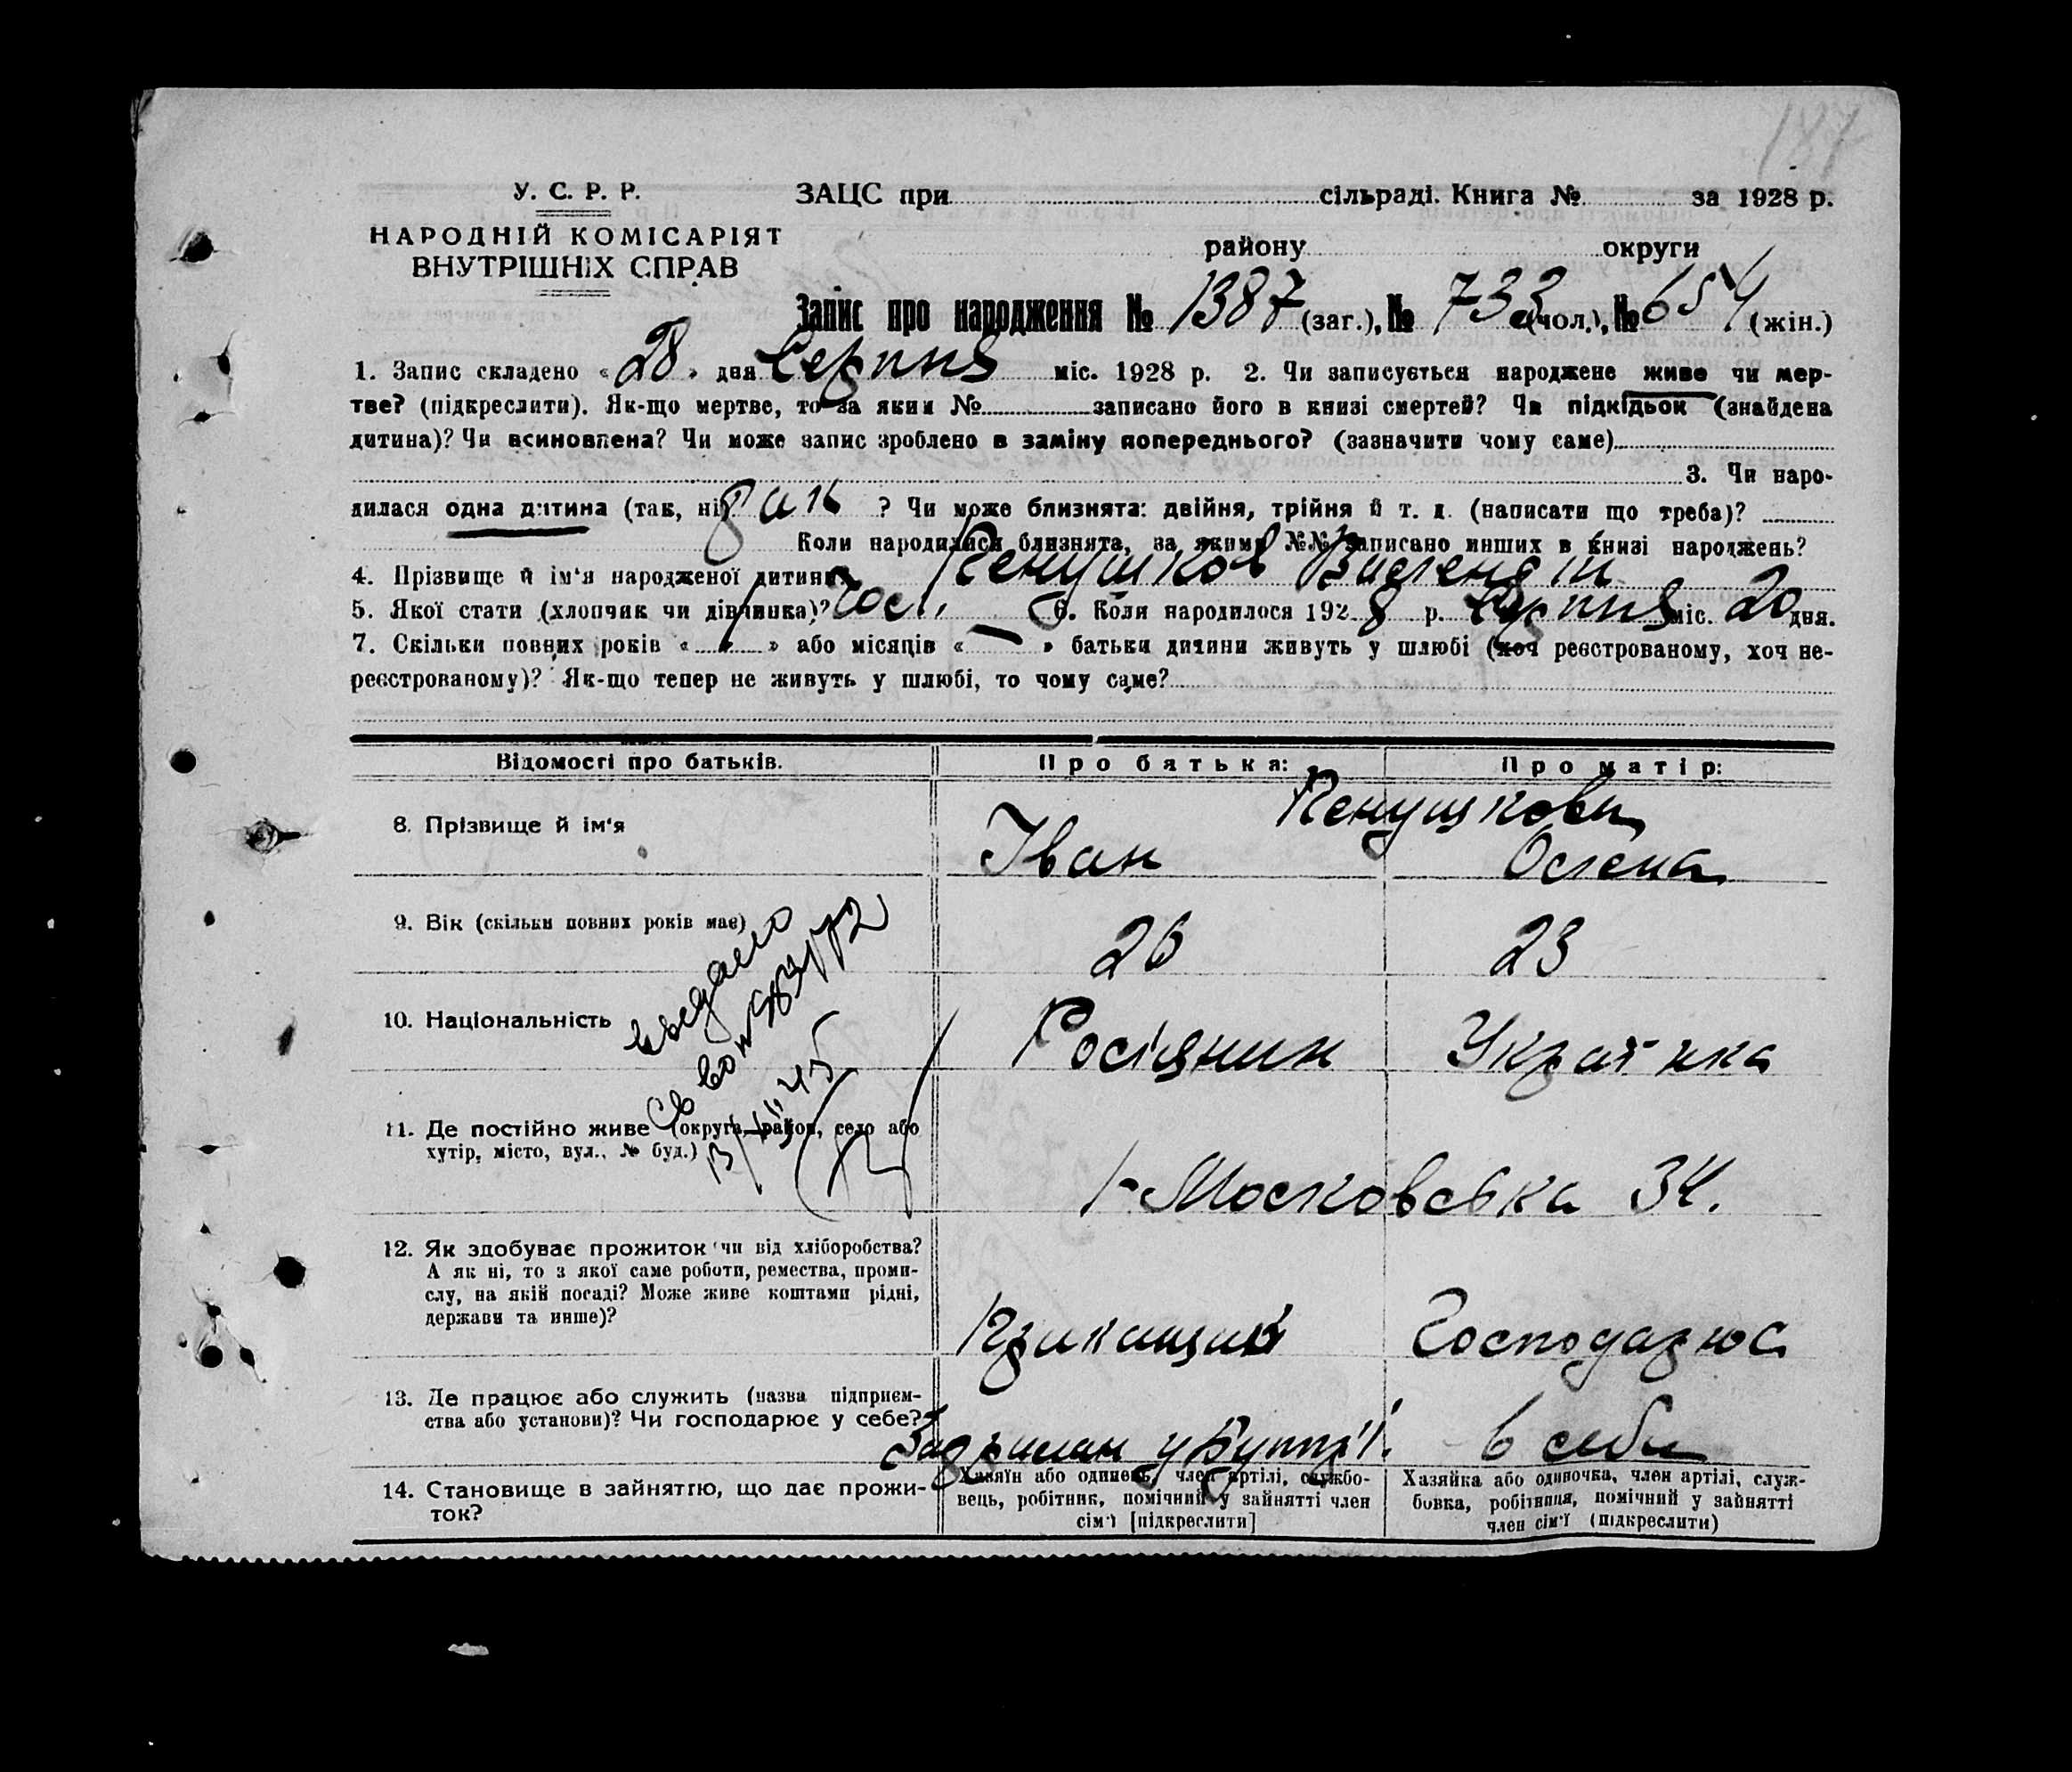 187
У. С. Р. Р.
НАРОДНІЙ КОМІСАРІЯТ
ВНУТРІШНІХ СПРАВ
ЗАЦС при сільраді. Книга № за 1928 р.
району округи
Запис про народження № 1387 (заг.), № 733 (чол.), № 654 (жін.)
1. Запис складено « 28 » дня Серпня міс. 1928 р. 2. Чи записується народжене живе чи мер-
тве? (підкреслити). Як-що мертве, то за яким № записано його в книзі смертей? Чи підкідьок (знайдена
дитина)? Чи всиновлена? Чи може запис зроблено в заміну попереднього? (зазначити чому саме)
3. Чи наро-
дилася одна дитина (так, ні) так ? Чи може близнята: двійня, трійня й т. д. (написати що треба)?
Коли народилися близнята, за якими №№ записано инших в книзі народжень?
4. Прізвище й ім'я народженої дитини
5. Якої стати (хлопчик чи дівчинка)? чол. 6. Коли народилося 1928 р. Серпня міс. 20 дня.
7. Скільки повних років « » або місяців « — » батьки дитини живуть у шлюбі (хоч реєстрованому, хоч не-
реєстрованому)? Як-що тепер не живуть у шлюбі, то чому саме?
Відомості про батьків. Про батька: Про матір:
8. Прізвище й ім'я Іван Олена
9. Вік (скільки повних років має) 26 23
10. Національність Росіянин Українка
11. Де постійно живе (округа, район, село або
хутір, місто, вул., № буд.)
1-Московська 34.
12. Як здобуває прожиток чи від хліборобства?
А як ні, то з якої саме роботи, ремества, проми-
слу, на якій посаді? Може живе коштами рідні,
держави та инше)?
Прикащик Господарює
13. Де працює або служить (назва підприєм-
ства або установи)? Чи господарює у себе?
в себе
14. Становище в зайняттю, що дає прожи-
ток?
Хазяїн або одинець, член артілі, службо-
вець, робітник, помічний у зайнятті член
сім'ї [підкреслити]
Хазяйка або одиночка, член артілі, служ-
бовка, робітниця, помічний у зайнятті
член сім'ї (підкреслити)